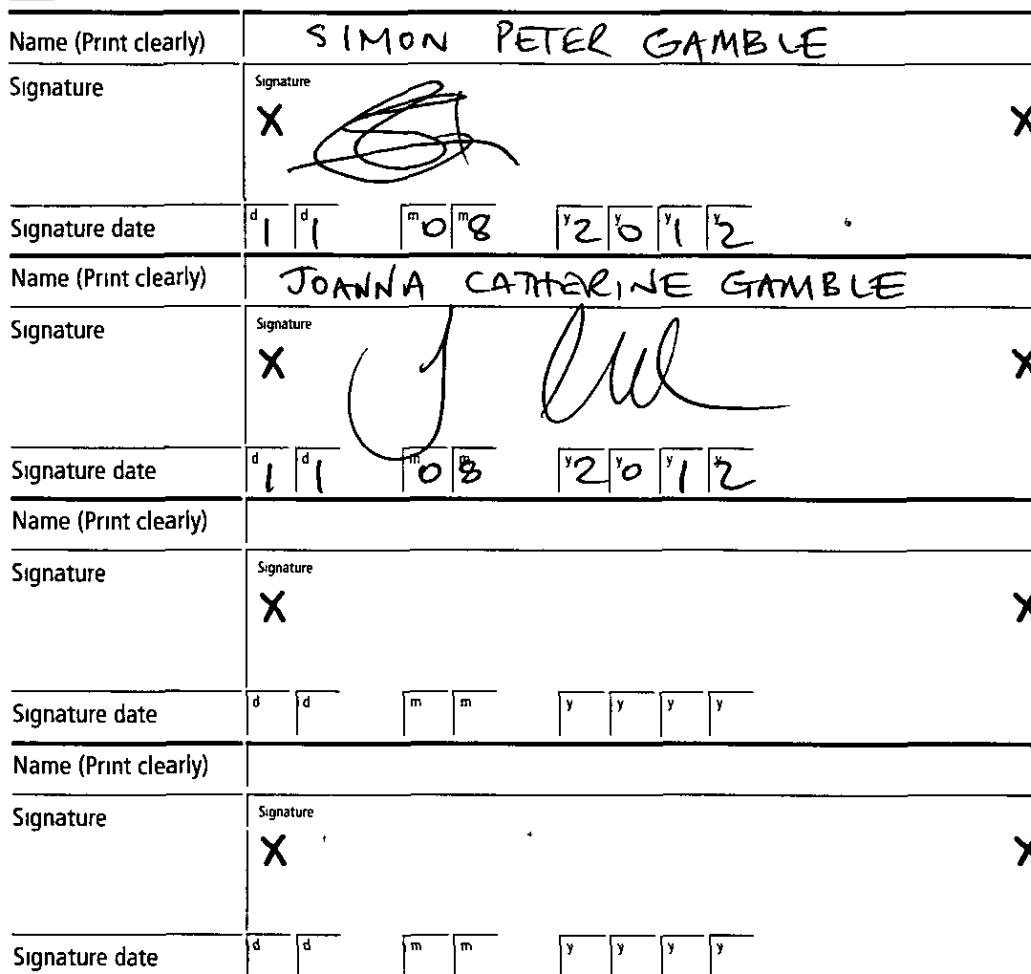 Name (Print clearly) SIMON PETER GAMBLE
Signature Signature
X X
Signature date d1 d1 m0 m8 y2 y0 y1 y2
Name (Print clearly) JOANNA CATHERINE GAMBLE
Signature Signature
X X
Signature date d1 d1 m0 m8 y2 y0 y1 y2
Name (Print clearly)
Signature Signature
X X
Signature date d d m m y y y y
Name (Print clearly)
Signature Signature
X X
Signature date d d m m y y y y